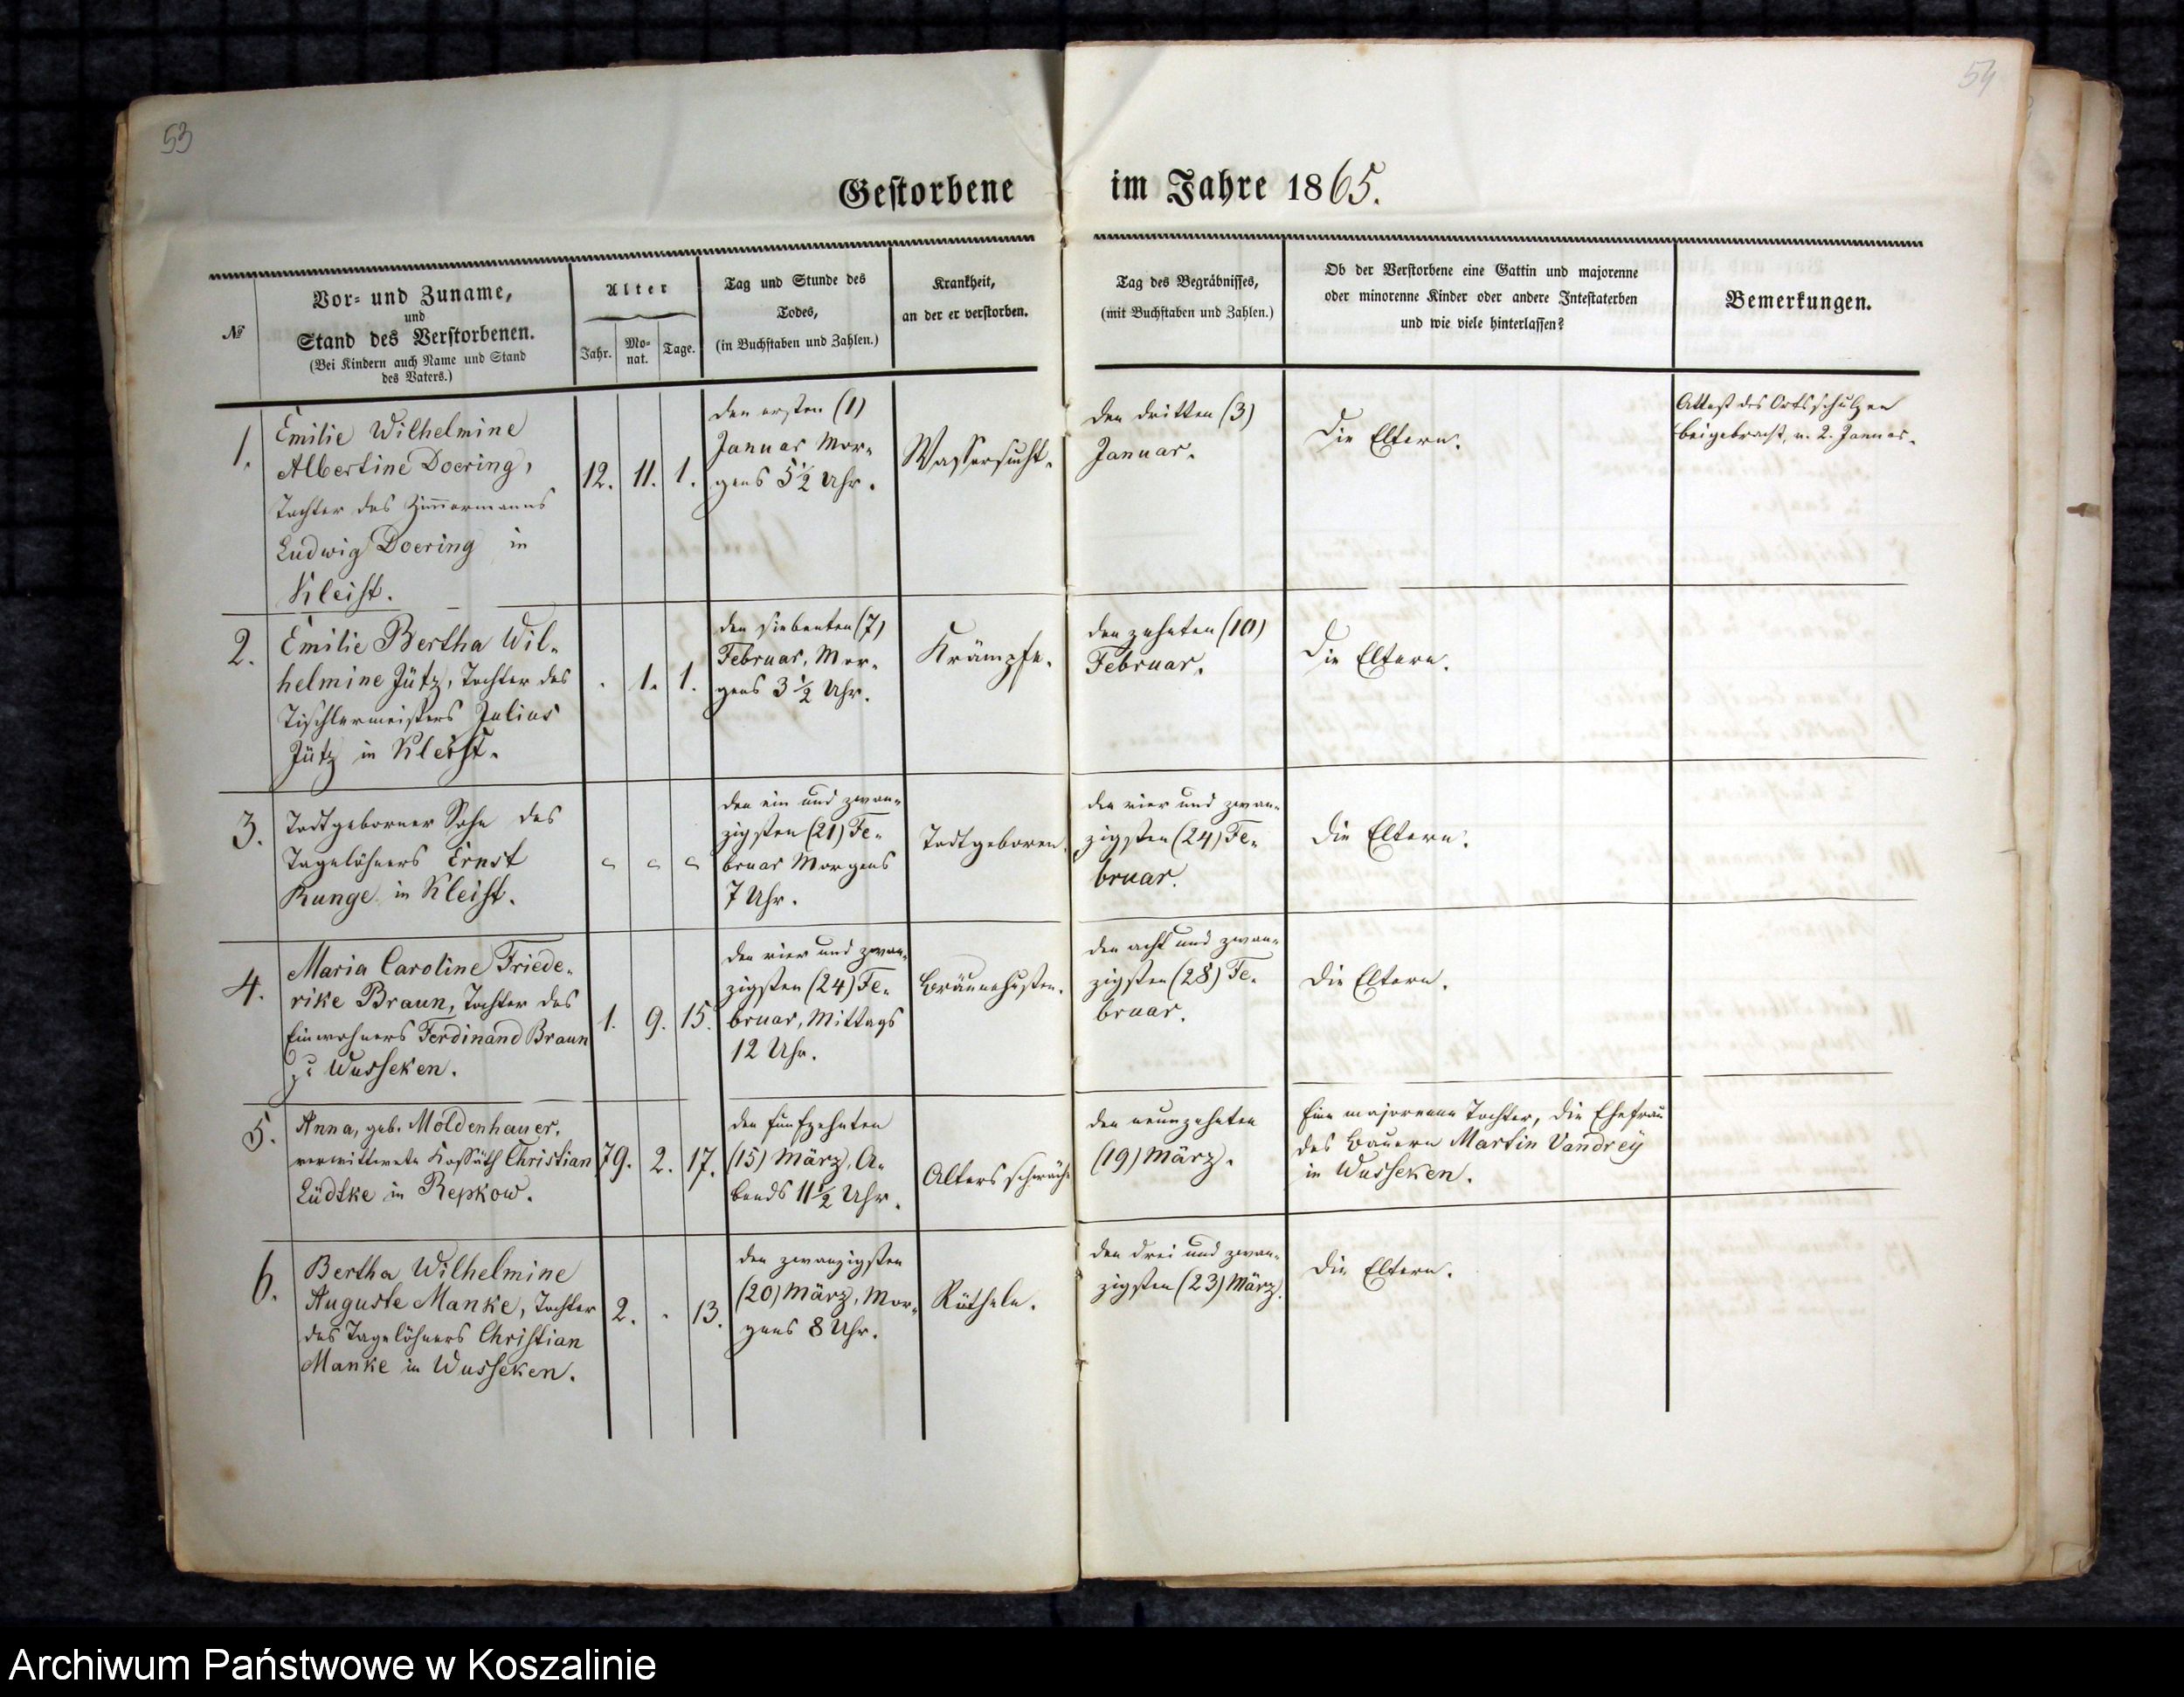 53
54
Gestorbene im Jahre 1865.
№
Vor- und Zuname,
und
Stand des Verstorbenen.
(Bei Kindern auch Name und Stand
des Vaters.)
Alter
Jahr.
Mo-
nat.
Tage.
Tag und Stunde des
Todes,
(in Buchstaben und Zahlen.)
Krankheit,
an der er verstorben.
Tag des Begräbnisses,
(mit Buchstaben und Zahlen.)
Ob der Verstorbene eine Gattin und majorenne
oder minorenne Kinder oder andere Intestaterben
und wie viele hinterlassen?
Bemerkungen.
1.
Emilie Wilhelmine
Albertine Doering,
Tochter des Zimmermanns
Ludwig Doering in
Kleist.
12. 11. 1.
den ersten (1)
Januar Mor-
gens 5½ Uhr.
Wassersucht.
den dritten (3)
Januar.
Die Eltern.
Attest des Ortsschulzen
beigebracht, v. 2. Januar.
2.
Emilie Bertha Wil-
helmine Jütz, Tochter des
Tischlermeisters Julius
Jütz in Kleist.
. 1. 1.
den siebenten (7)
Februar, Mor-
gens 3½ Uhr.
Krämpfe.
den zehnten (10)
Februar.
Die Eltern.
3.
Todtgeborner Sohn des
Tagelöhners Ernst
Runge in Kleist.
den ein und zwan-
zigsten (21) Fe-
bruar Morgens
7 Uhr.
Todtgeboren.
den vier und zwan-
zigsten (24) Fe-
bruar.
Die Eltern.
4.
Maria Caroline Friede-
rike Braun, Tochter des
Einwohners Ferdinand Braun
zu Wusseken.
1. 9. 15.
den vier und zwan-
zigsten (24) Fe-
bruar, Mittags
12 Uhr.
Bräunehusten.
den acht und zwan-
zigsten (28) Fe-
bruar.
Die Eltern.
5.
Anna, geb. Moldenhauer,
verwittwete Kossäth Christian
Lüdtke in Repkow.
79. 2. 17.
den fünfzehnten
(15) März, A-
bends 11½ Uhr.
Altersschwäche
den neunzehnten
(19) März.
Eine majorenne Tochter, die Ehefrau
des Bauern Martin Vandrey
in Wusseken.
6.
Bertha Wilhelmine
Auguste Manke, Tochter
des Tagelöhners Christian
Manke in Wusseken.
2. . 13.
den zwanzigsten
(20) März, Mor-
gens 8 Uhr.
Rötheln.
den drei und zwan-
zigsten (23) März.
Die Eltern.
Archiwum Państwowe w Koszalinie